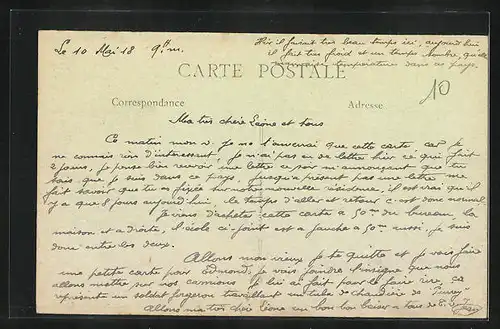 Le 10 Mai 18 9h m.
Hier il faisait très beau temps ici, aujourd'hui
il fait très froid et un temps sombre, quelle
température dans ce pays.
CARTE POSTALE
10
Correspondance
Adresse
Ma très chère Léone et tous
Ce matin mon v. je ne t'enverrai que cette carte car je
ne connais rien d'intéressant, je n'ai pas eu de lettre hier ce qui fait
2 jours, je pense bien recevoir une lettre ce soir m'annonçant que tu
sais que je suis dans ce pays. Jusqu'à présent pas une lettre me
fait savoir que tu es fixée sur notre nouvelle résidence, il est vrai qu'il
y a que 6 jours aujourd'hui, le temps d'aller et retour c'est donc normal.
Je viens d'acheter cette carte à 50m du bureau, la
maison est à droite, l'école ci-joint est à gauche à 50m aussi, je suis
donc entre les deux.
Allons mon vieux je te quitte et je vais faire
une petite carte pour Edmond. Je vais joindre l'insigne que nous
allons mettre sur nos camions. Je lui ai fait pour le faire rire, ça
représente un soldat forgeron travaillant un tube de chaudière de
Allons ma très chère Léone un bon gros baiser à tous de